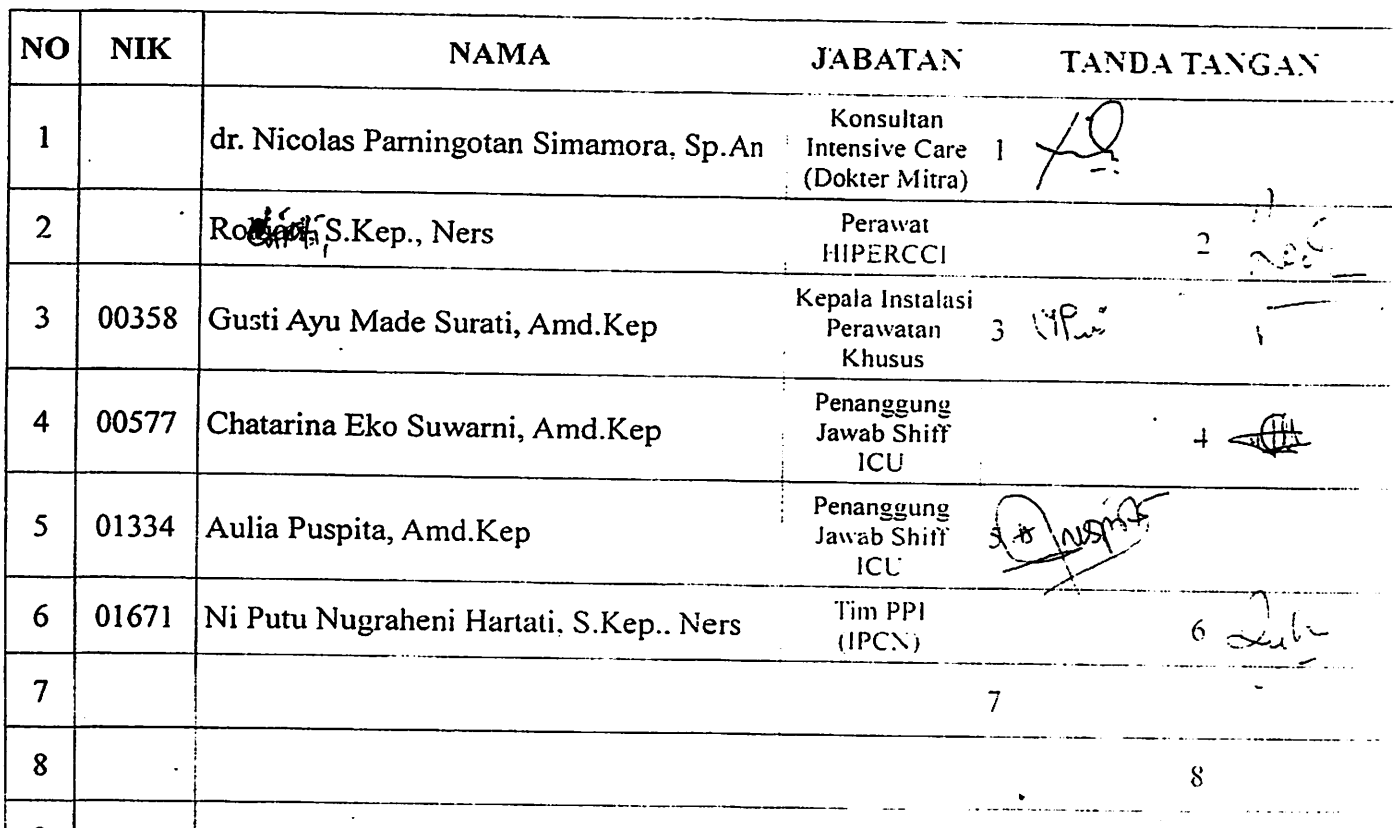 NO NIK NAMA JABATAN TANDA TANGAN
1 dr. Nicolas Parningotan Simamora, Sp.An Konsultan Intensive Care (Dokter Mitra) 1
2 S.Kep., Ners Perawat HIPERCCI 2
3 00358 Gusti Ayu Made Surati, Amd.Kep Kepala Instalasi Perawatan Khusus 3
4 00577 Chatarina Eko Suwarni, Amd.Kep Penanggung Jawab Shiff ICU 4
5 01334 Aulia Puspita, Amd.Kep Penanggung Jawab Shiff ICU 5
6 01671 Ni Putu Nugraheni Hartati, S.Kep.. Ners Tim PPI (IPCN) 6
7 7
8 8